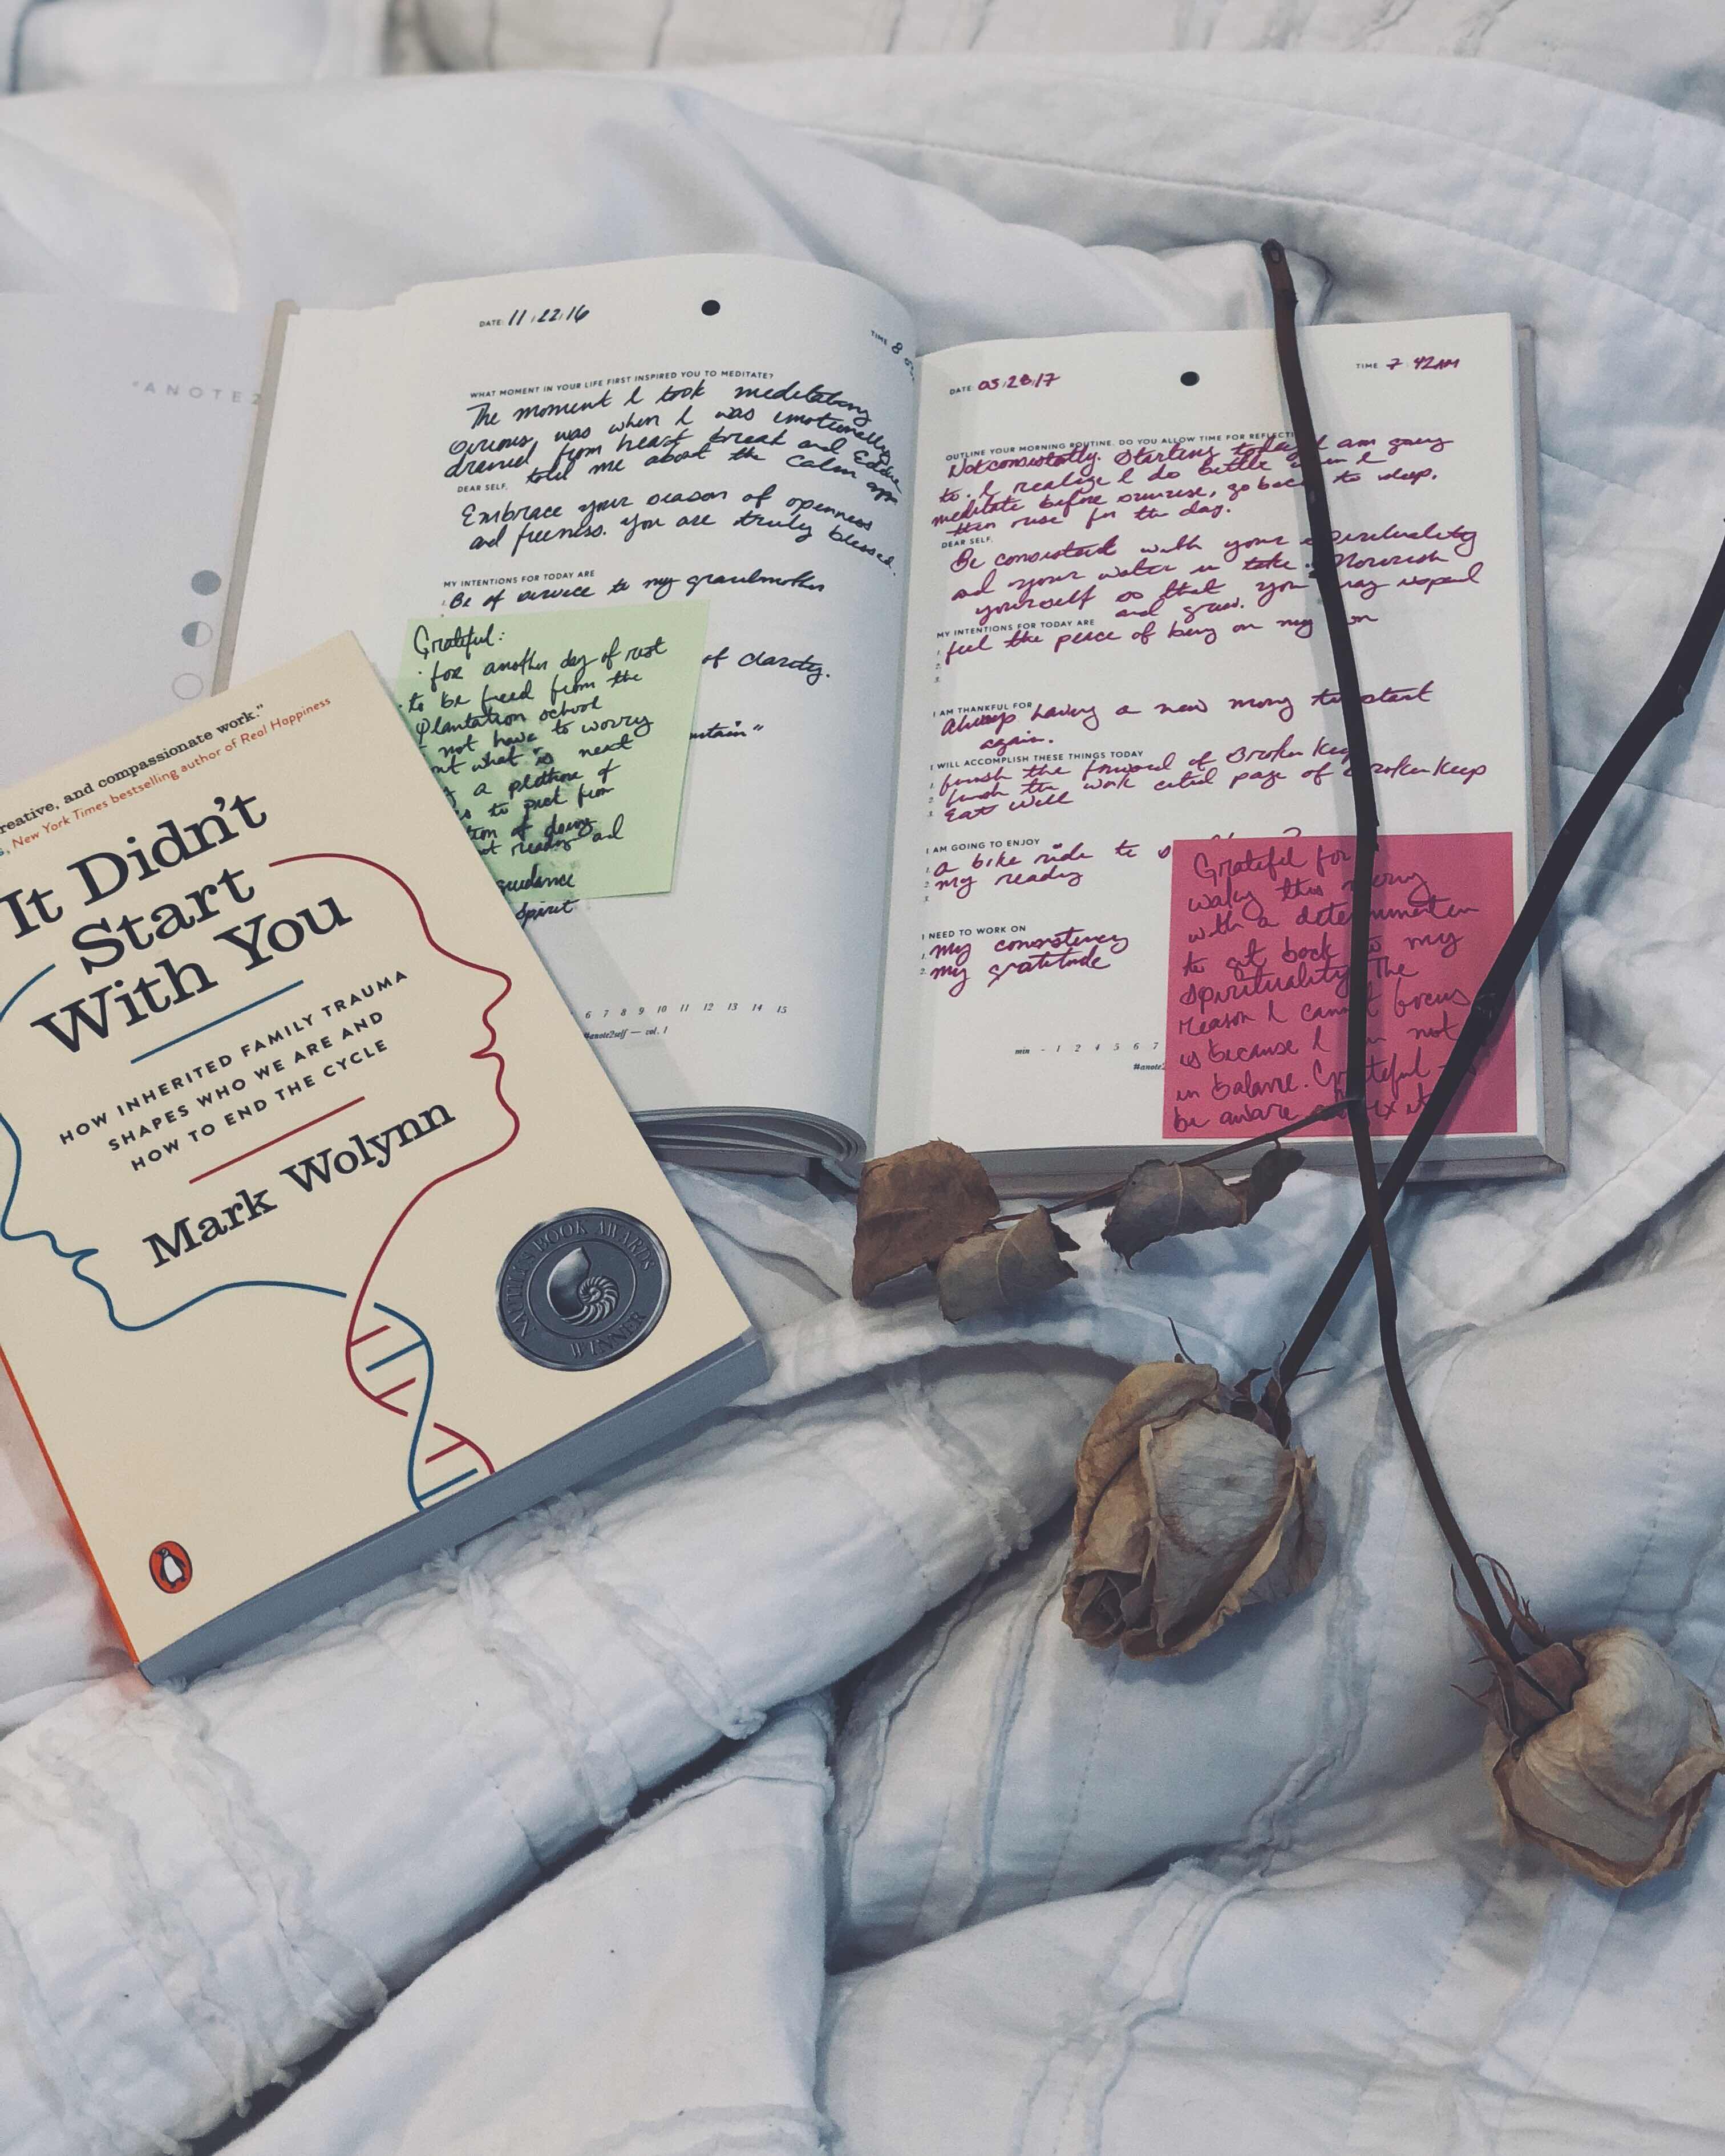 "ANOTE2
DATE: 11/22/16
TIME 8
WHAT MOMENT IN YOUR LIFE FIRST INSPIRED YOU TO MEDITATE?
The moment I took meditating
was when I was emotionally
drained from heart break and Eddie
told me about the calm app
DEAR SELF,
Embrace your season of openness
and freeness. You are truly blessed.
MY INTENTIONS FOR TODAY ARE
Be of service to my grandmother
of clarity.
Grateful:
· for another day of rest
· to be freed from the
plantation school
not have to worry
what is next
a plethora of
to pick from
of doing
ready and
guidance
spirit
6 7 8 9 10 11 12 13 14 15
#anote2self — vol. 1
DATE: 05/28/17
TIME 7:42AM
OUTLINE YOUR MORNING ROUTINE. DO YOU ALLOW TIME FOR REFLECTI
Not consistently. Starting today I am going
to. I realize I do better when I
meditate before sunrise, go back to sleep,
then rise for the day.
DEAR SELF,
Be consistent with your spirituality
and your water in take. Nourish
yourself so that you may expand
and grow.
MY INTENTIONS FOR TODAY ARE
1. feel the peace of being on my own
2.
3.
I AM THANKFUL FOR
Always having a new mornng to start
again.
I WILL ACCOMPLISH THESE THINGS TODAY
1. finish the forward of Broken Keep
2. finish the work cited page of Broken Keep
3. Eat well
I AM GOING TO ENJOY
1. a bike ride to
2. my
3.
I NEED TO WORK ON
1. my consistency
2. my gratitude
min - 1 2 4 5 6 7
#anote2
Grateful for
waking this morning
with a determination
to get back to my
spirituality. The
reason I cannot focus
is because I am not
in balance. Grateful to
be aware and fix it.
reative, and compassionate work."
New York Times bestselling author of Real Happiness
It Didn't
Start
With You
HOW INHERITED FAMILY TRAUMA
SHAPES WHO WE ARE AND
HOW TO END THE CYCLE
Mark Wolynn
NAUTILUS BOOK AWARDS
WINNER